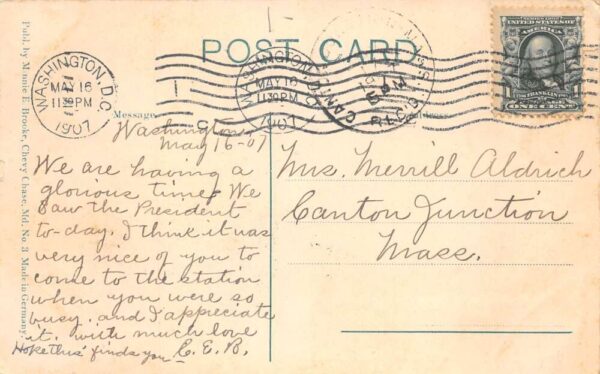 POST CARD
WASHINGTON, D.C.
MAY 16
11 30 PM
1907
WASHINGTON, D.C.
MAY 16
11 30 PM
1907
CANTON
5 PM
REC'D.
SERIES 1902
UNITED STATES OF AMERICA
FRANKLIN
ONE CENT
Publ. by Minnie E. Brooke, Chevy Chase, Md. No. 3 Made in Germany.
Message
Address
Washington
May 16-07
We are having a
glorious time. We
saw the President
to-day. I think it was
very nice of you to
come to the station
when you were so
busy, and I appreciate
it. with much love
Hope this finds you C. E. B.
Mrs. Merrill Aldrich
Canton Junction
Mass.